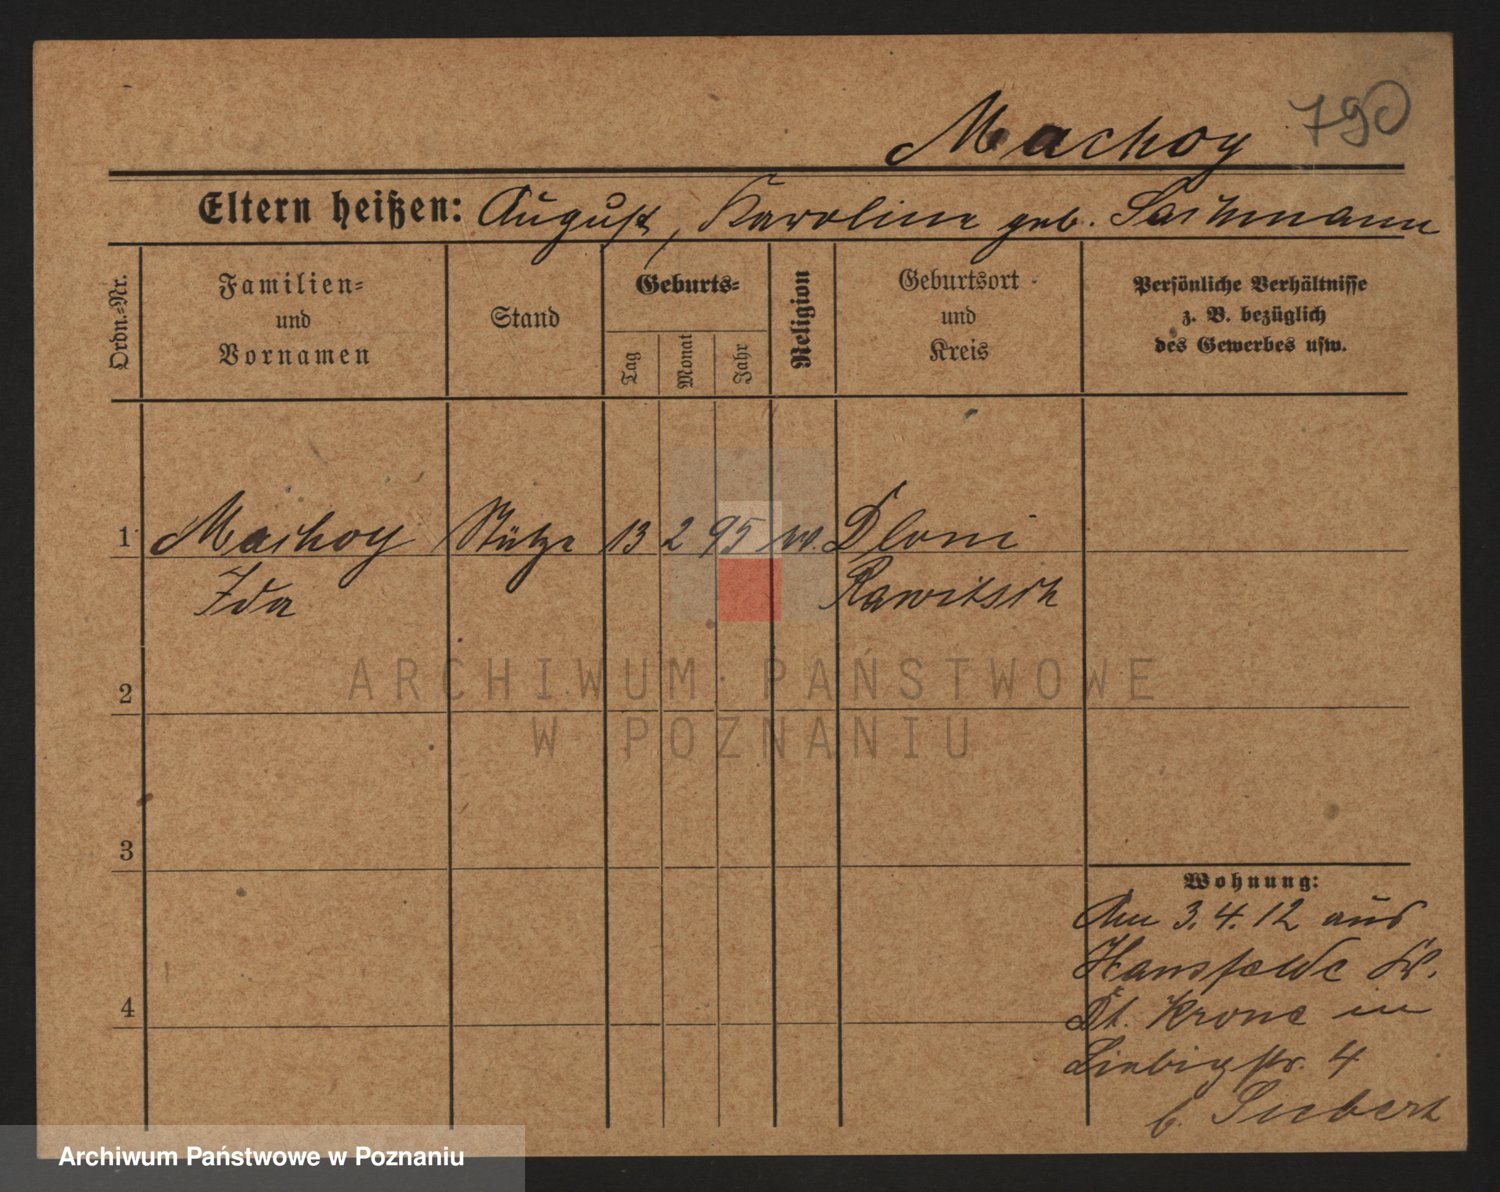 Machoy 790
Eltern heißen: August, Karoline geb. Sachmann
Ordn.-Nr.
Familien-
und
Vornamen
Stand
Geburts-
Tag
Monat
Jahr
Religion
Geburtsort
und
Kreis
Persönliche Verhältnisse
z. B. bezüglich
des Gewerbes usw.
1 Machoy Stütze 13 2 95 Dloni
Ida Rawitsch
2
3
4
Wohnung:
Am 3.4.12 aus
Hansfelde Kr.
Dt. Krone in
Liebigstr. 4
b. Siebert
ARCHIWUM PAŃSTWOWE
W POZNANIU
Archiwum Państwowe w Poznaniu